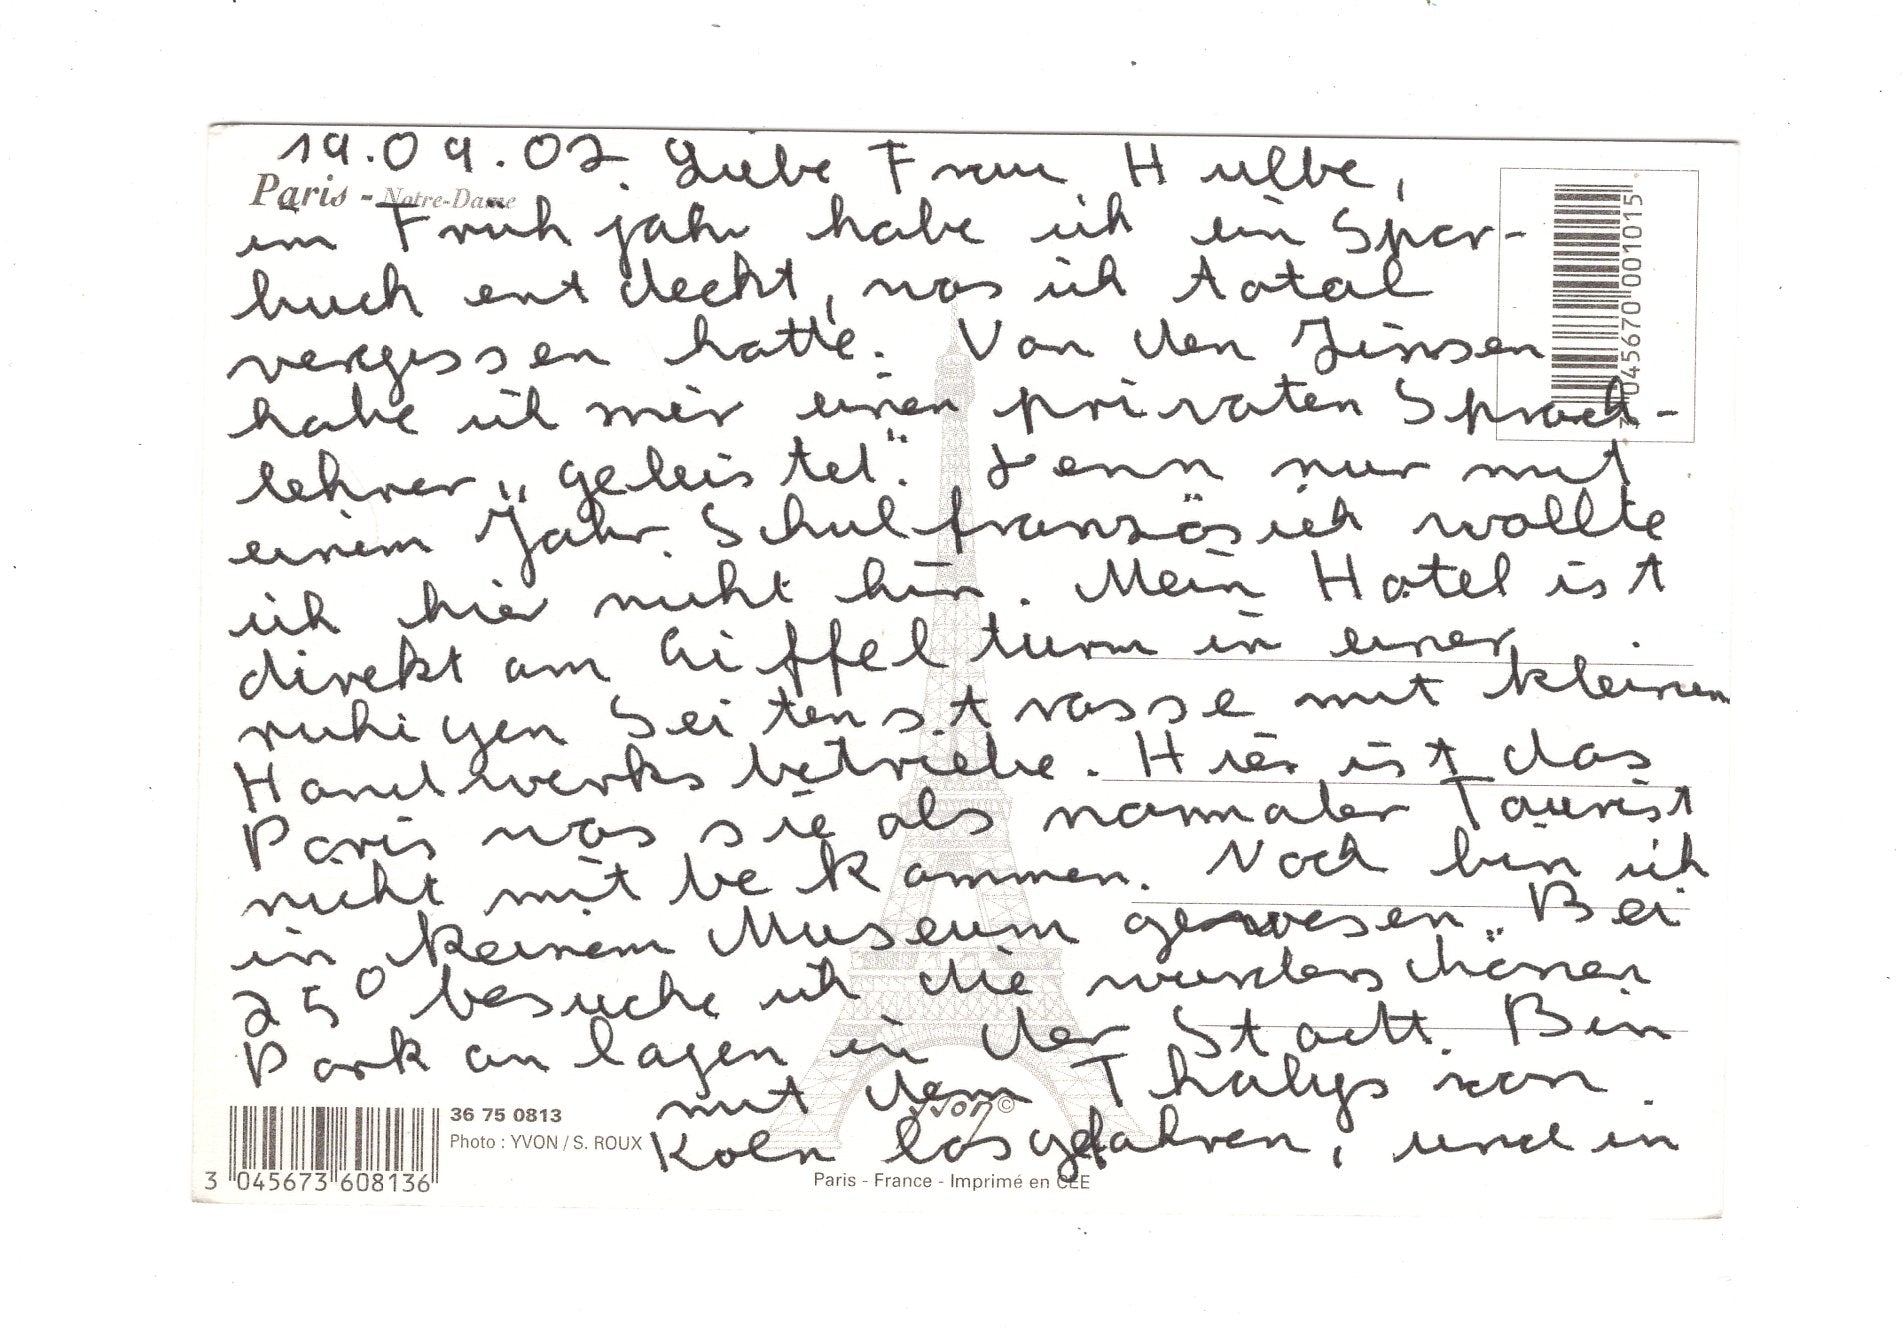 19.09.02. Liebe Frau Hülbe,
Paris - Notre-Dame
im Frühjahr habe ich ein Spar-
buch entdeckt, was ich total
vergessen hatte. Von den Zinsen
habe ich mir einen privaten Sprach-
lehrer „geleistet“. Denn nur mit
einem Jahr Schulfranzösich wollte
ich hier nicht hin. Mein Hotel ist
direkt am Eiffelturm in einer
ruhigen Seitenstrasse mit kleinen
Handwerksbetriebe. Hier ist das
Paris was sie als normaler Tourist
nicht mit bekommen. Noch bin ich
in keinem Museum gewesen. Bei
25° besuche ich die wunderschönen
Parkanlagen in der Stadt. Bin
mit dem Thalys von
Köln losgefahren, und in
36 75 0813
Photo : YVON / S. ROUX
3 045673 608136
yvon ©
Paris - France - Imprimé en CEE
3 045670 001015